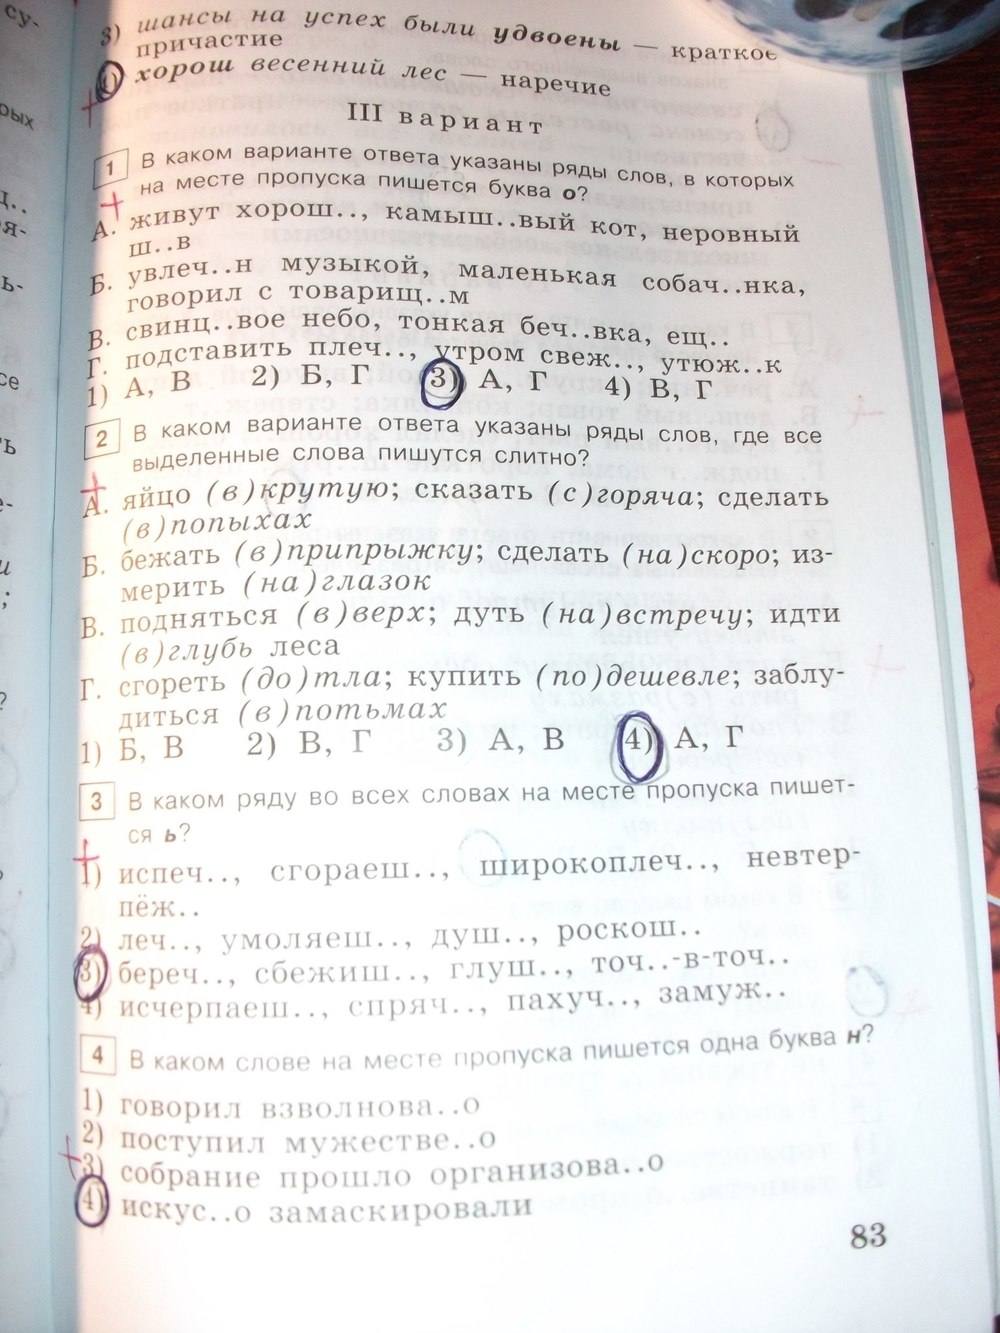 3) шансы на успех были удвоены — краткое
причастие
4) хорош весенний лес — наречие
III вариант
1 В каком варианте ответа указаны ряды слов, в которых
на месте пропуска пишется буква о?
А. живут хорош.., камыш..вый кот, неровный
ш..в
Б. увлеч..н музыкой, маленькая собач..нка,
говорил с товарищ..м
В. свинц..вое небо, тонкая беч..вка, ещ..
Г. подставить плеч.., утром свеж.., утюж..к
1) А, В 2) Б, Г 3) А, Г 4) В, Г
2 В каком варианте ответа указаны ряды слов, где все
выделенные слова пишутся слитно?
А. яйцо (в)крутую; сказать (с)горяча; сделать
(в)попыхах
Б. бежать (в)припрыжку; сделать (на)скоро; из-
мерить (на)глазок
В. подняться (в)верх; дуть (на)встречу; идти
(в)глубь леса
Г. сгореть (до)тла; купить (по)дешевле; заблу-
диться (в)потьмах
1) Б, В 2) В, Г 3) А, В 4) А, Г
3 В каком ряду во всех словах на месте пропуска пишет-
ся ь?
1) испеч.., сгораеш.., широкоплеч.., невтер-
пёж..
2) леч.., умоляеш.., душ.., роскош..
3) береч.., сбежиш.., глуш.., точ..-в-точ..
4) исчерпаеш.., спряч.., пахуч.., замуж..
4 В каком слове на месте пропуска пишется одна буква н?
1) говорил взволнова..о
2) поступил мужестве..о
3) собрание прошло организова..о
4) искус..о замаскировали
83